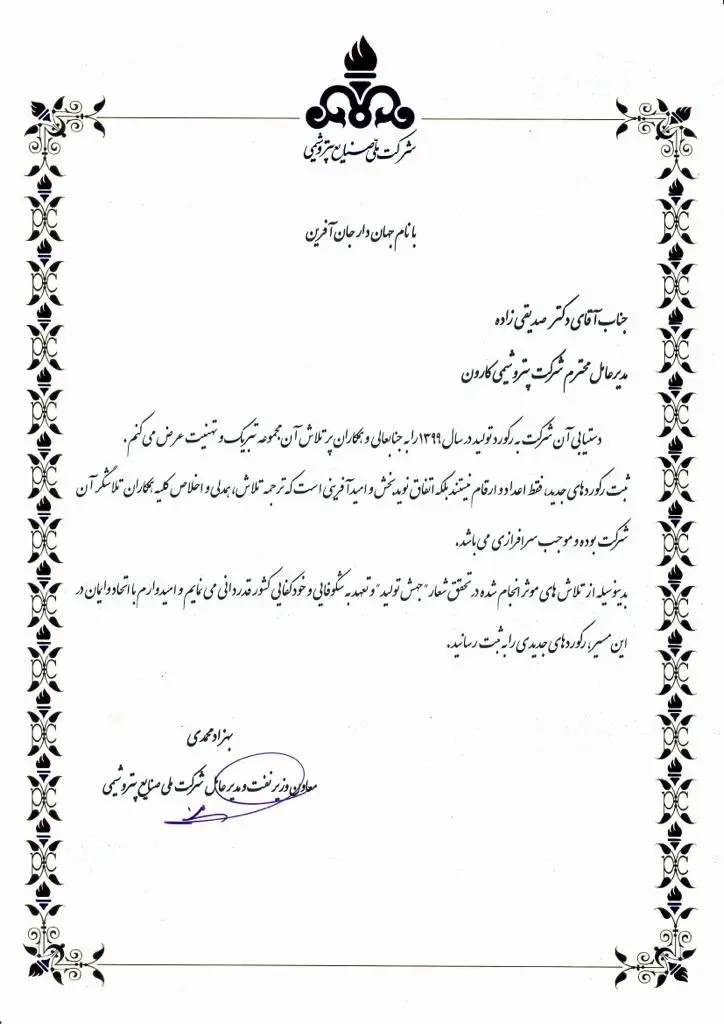 شرکت ملی صنایع پتروشیمی
با نام جهان دار جان آفرین
جناب آقای دکتر صدیقی زاده
مدیرعامل محترم شرکت پتروشیمی کارون
دستیابی آن شرکت به رکورد تولید در سال ۱۳۹۹ را به جنابعالی و همکاران پر تلاش آن مجموعه تبریک و تهنیت عرض می کنم.
ثبت رکوردهای جدید، فقط اعداد و ارقام نیستند بلکه اتفاق نویدبخش و امیدآفرینی است که ترجمه تلاش، همدلی و اخلاص کلیه همکاران تلاشگر آن
شرکت بوده و موجب سرافرازی می باشد.
بدینوسیله از تلاش های موثر انجام شده در تحقق شعار "جهش تولید" و تعهد به شکوفایی و خودکفایی کشور قدردانی می نمایم و امیدوارم با اتحاد و ایمان در
این مسیر، رکوردهای جدیدی را به ثبت رسانید.
بهزاد محمدی
معاون وزیر نفت و مدیرعامل شرکت ملی صنایع پتروشیمی